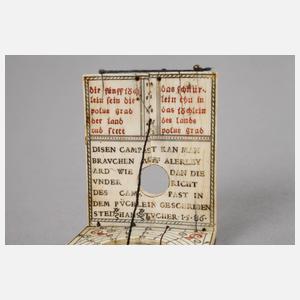 die fünff löch
lein sein die
polus grad
der land
und stett
das schnür
lein thu in
das löchlein
des lands
polus grad
DISEN CAMPAST KAN MAN
BRAVCHEN AVFF ALERLEY
ARD WIE DAN DIE
VNDER RICHT
DES CAM PAST IN
DEM PVCHLEIN GESCHRIBEN
STED HANS TVCHER 1·5·86·